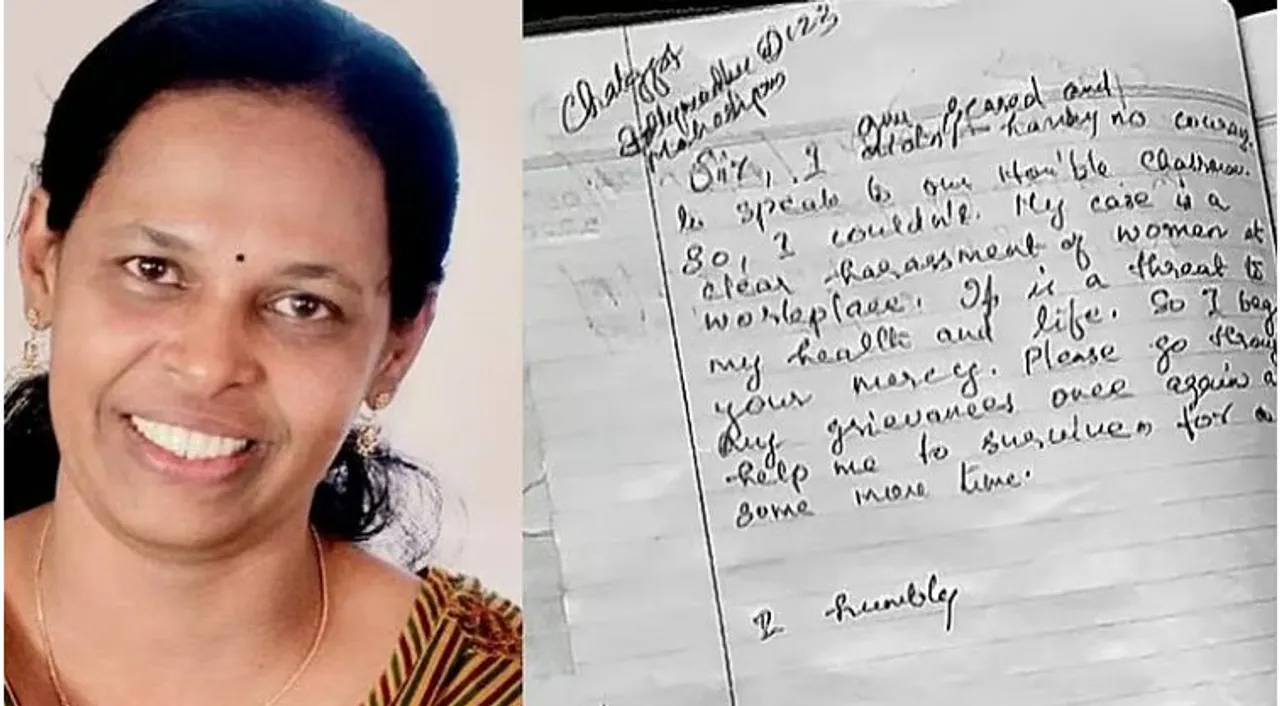 Sir, I am scared and
having no courag
to speak to our Hon'ble Chairman.
So, I couldn't. My case is a
clear harassment of women at
workplace. It is a threat to
my health and life. So I beg
your mercy. Please go throug
my grievances once again a
help me to for a
some more time.
I humbly